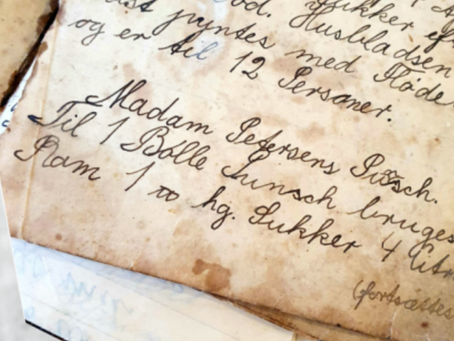 Sukker eft
pyntes med Fløde
Husbladsen
og er til 12 Personer.
Madam Petersens Púnsch.
Til 1 Bolle Punsch bruges
Ram 1 hg. Sukker 4 Citr
(fortsættes